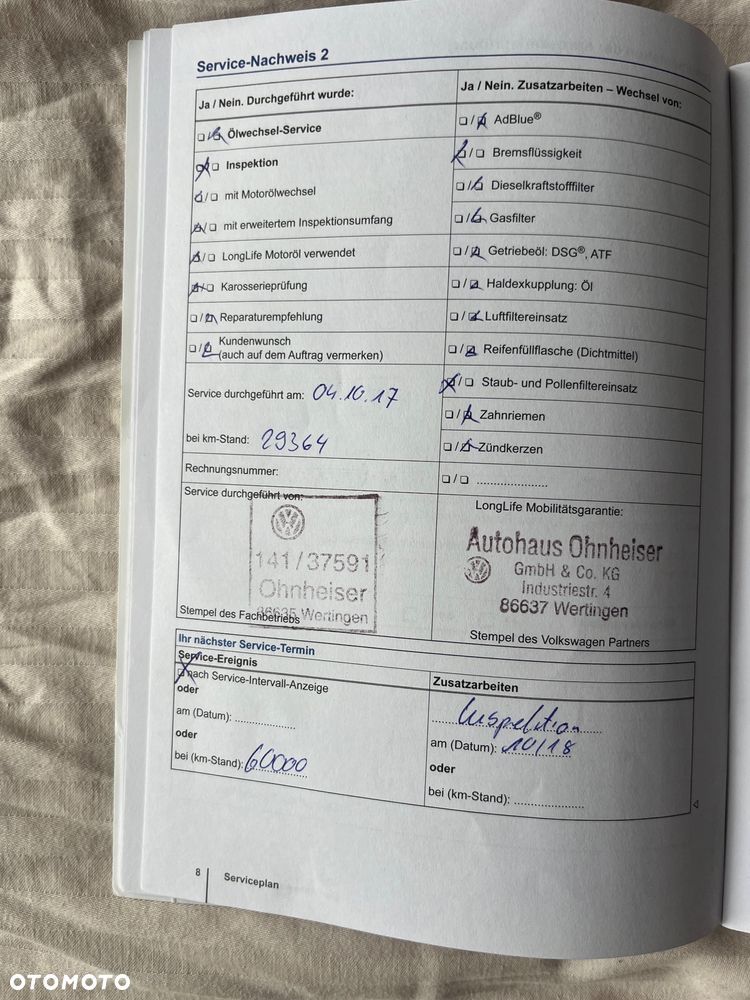 Service-Nachweis 2
Ja / Nein. Durchgeführt wurde:
Ölwechsel-Service
Inspektion
mit Motorölwechsel
mit erweitertem Inspektionsumfang
LongLife Motoröl verwendet
Karosserieprüfung
Reparaturempfehlung
Kundenwunsch
(auch auf dem Auftrag vermerken)
Service durchgeführt am: 04.10.17
bei km-Stand: 29364
Rechnungsnummer:
Service durchgeführt von:
141/37591
Ohnheiser
86635 Wertingen
Stempel des Fachbetriebs
Ja / Nein. Zusatzarbeiten – Wechsel von:
AdBlue®
Bremsflüssigkeit
Dieselkraftstofffilter
Gasfilter
Getriebeöl: DSG®, ATF
Haldexkupplung: Öl
Luftfiltereinsatz
Reifenfüllflasche (Dichtmittel)
Staub- und Pollenfiltereinsatz
Zahnriemen
Zündkerzen
/ ......................
LongLife Mobilitätsgarantie:
Autohaus Ohnheiser
GmbH & Co. KG
Industriestr. 4
86637 Wertingen
Stempel des Volkswagen Partners
Ihr nächster Service-Termin
Service-Ereignis
nach Service-Intervall-Anzeige
oder
am (Datum): ..................
oder
bei (km-Stand): 60000
Zusatzarbeiten
Inspektion
am (Datum): 10/18
oder
bei (km-Stand): .....................
8 Serviceplan
OTOMOTO